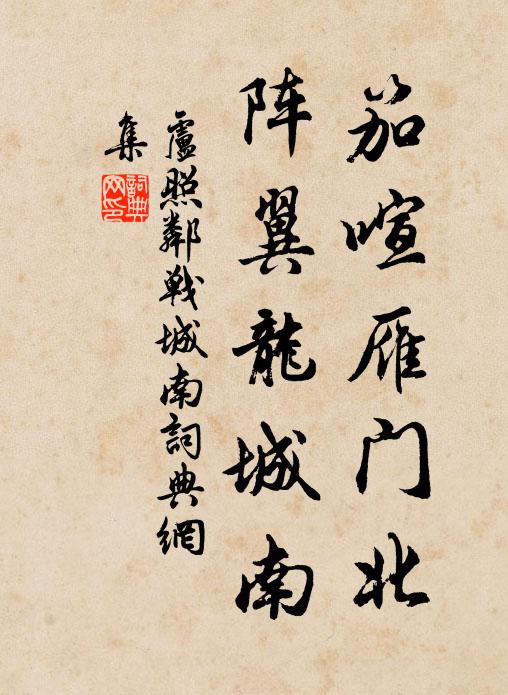 笳喧雁门北
阵翼龍城南
盧照鄰戰城南詞典網
集
詞典
网印